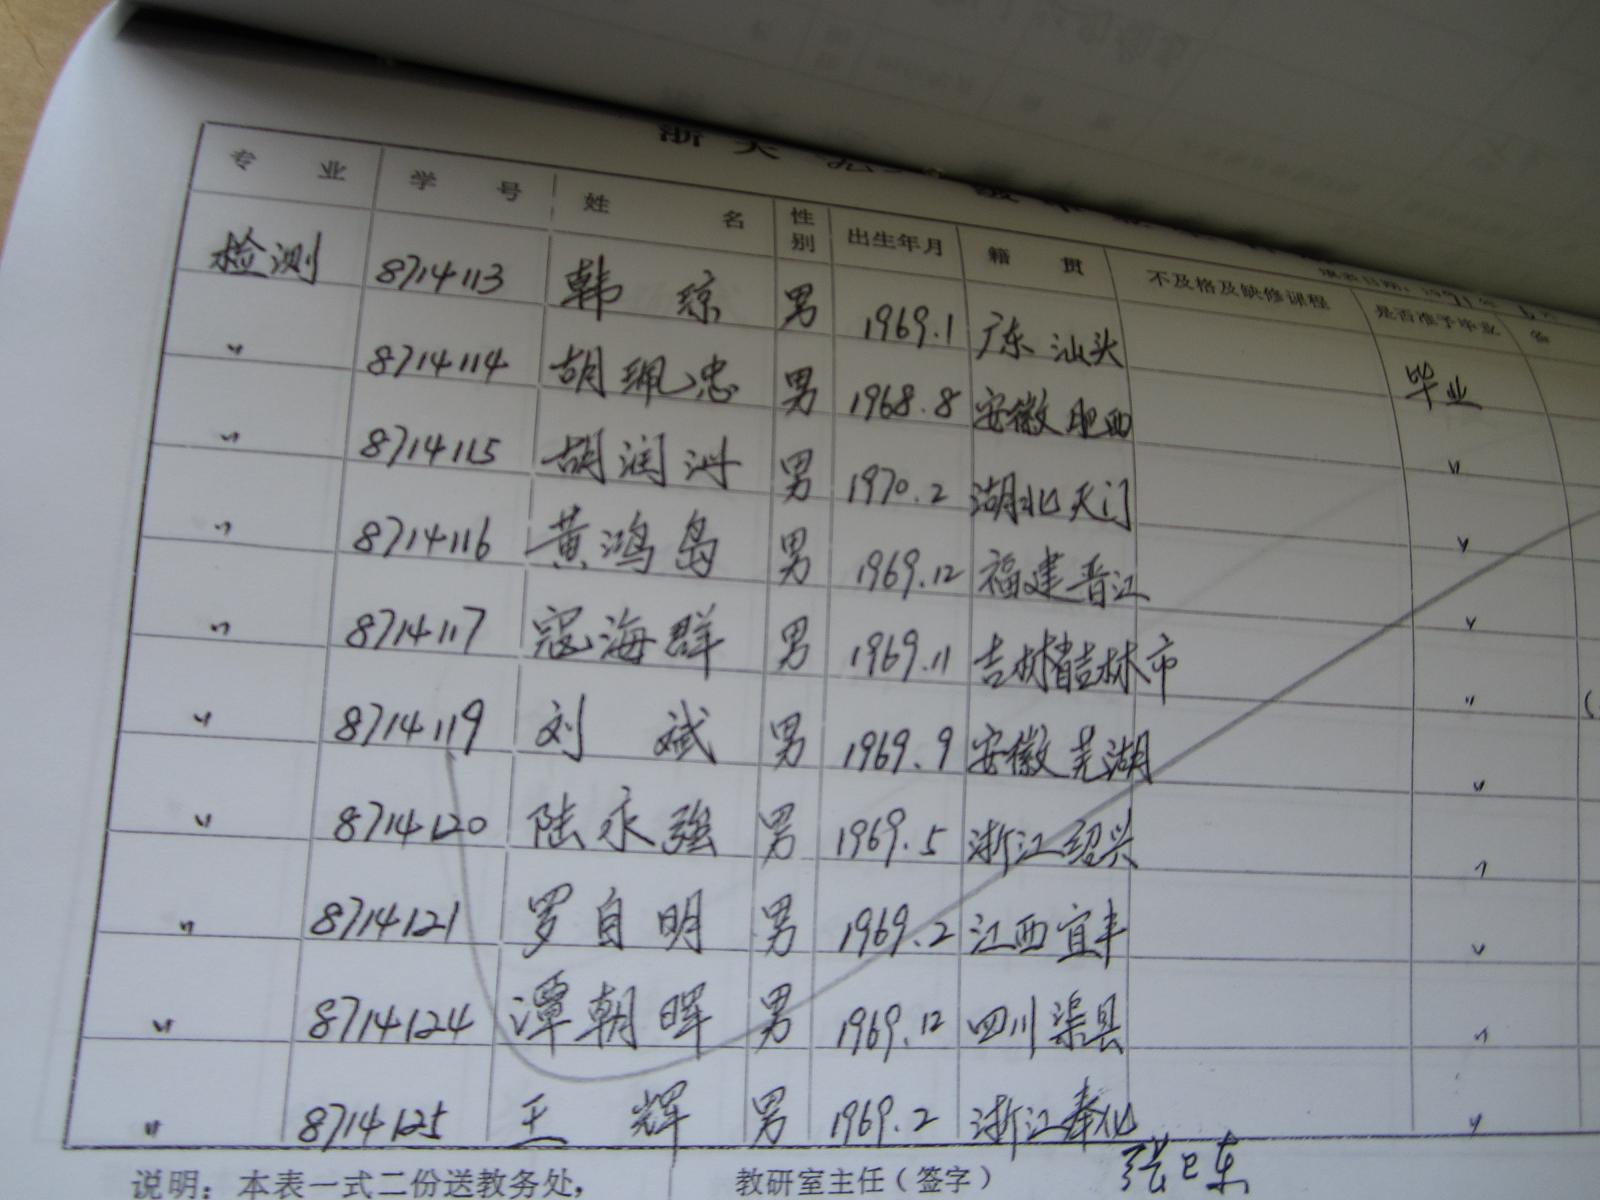 专业 学号 姓名 性别 出生年月 籍贯 不及格及缺修课程 是否准予毕业
检测 8714113 韩琼 男 1969.1 广东汕头 毕业
〃 8714114 胡珮忠 男 1968.8 安徽肥西 〃
〃 8714115 胡润 男 1970.2 湖北天门 〃
〃 8714116 黄鸿岛 男 1969.12 福建晋江 〃
〃 8714117 寇海群 男 1969.11 吉林省吉林市 〃
〃 8714119 刘斌 男 1969.9 安徽芜湖 〃
〃 8714120 陆永强 男 1969.5 浙江绍兴 〃
〃 8714121 罗自明 男 1969.2 江西宜丰 〃
〃 8714124 潭朝晖 男 1969.12 四川渠县 〃
〃 8714125 王辉 男 1969.2 浙江奉化 〃
说明：本表一式二份送教务处， 教研室主任（签字）